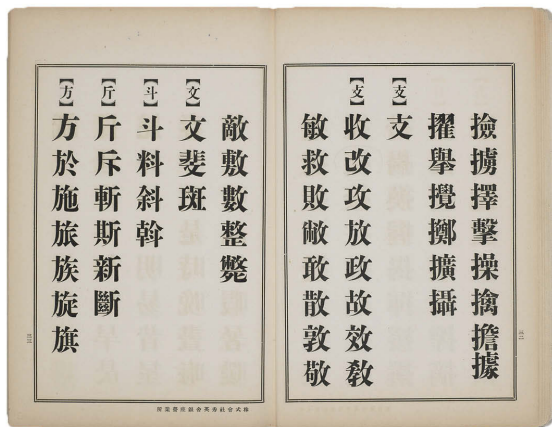 撿擄擇擊操擒擔據
擢舉攪擲擴攝
【支】支
【攴】收改攻放政故效敎
敏救敗敝敢散敦敬
三二
敵敷數整斃
【文】文斐斑
【斗】斗料斜斡
【斤】斤斥斬斯新斷
【方】方於施旅族旋旗
三三
株式會社秀英舍銀座營業所